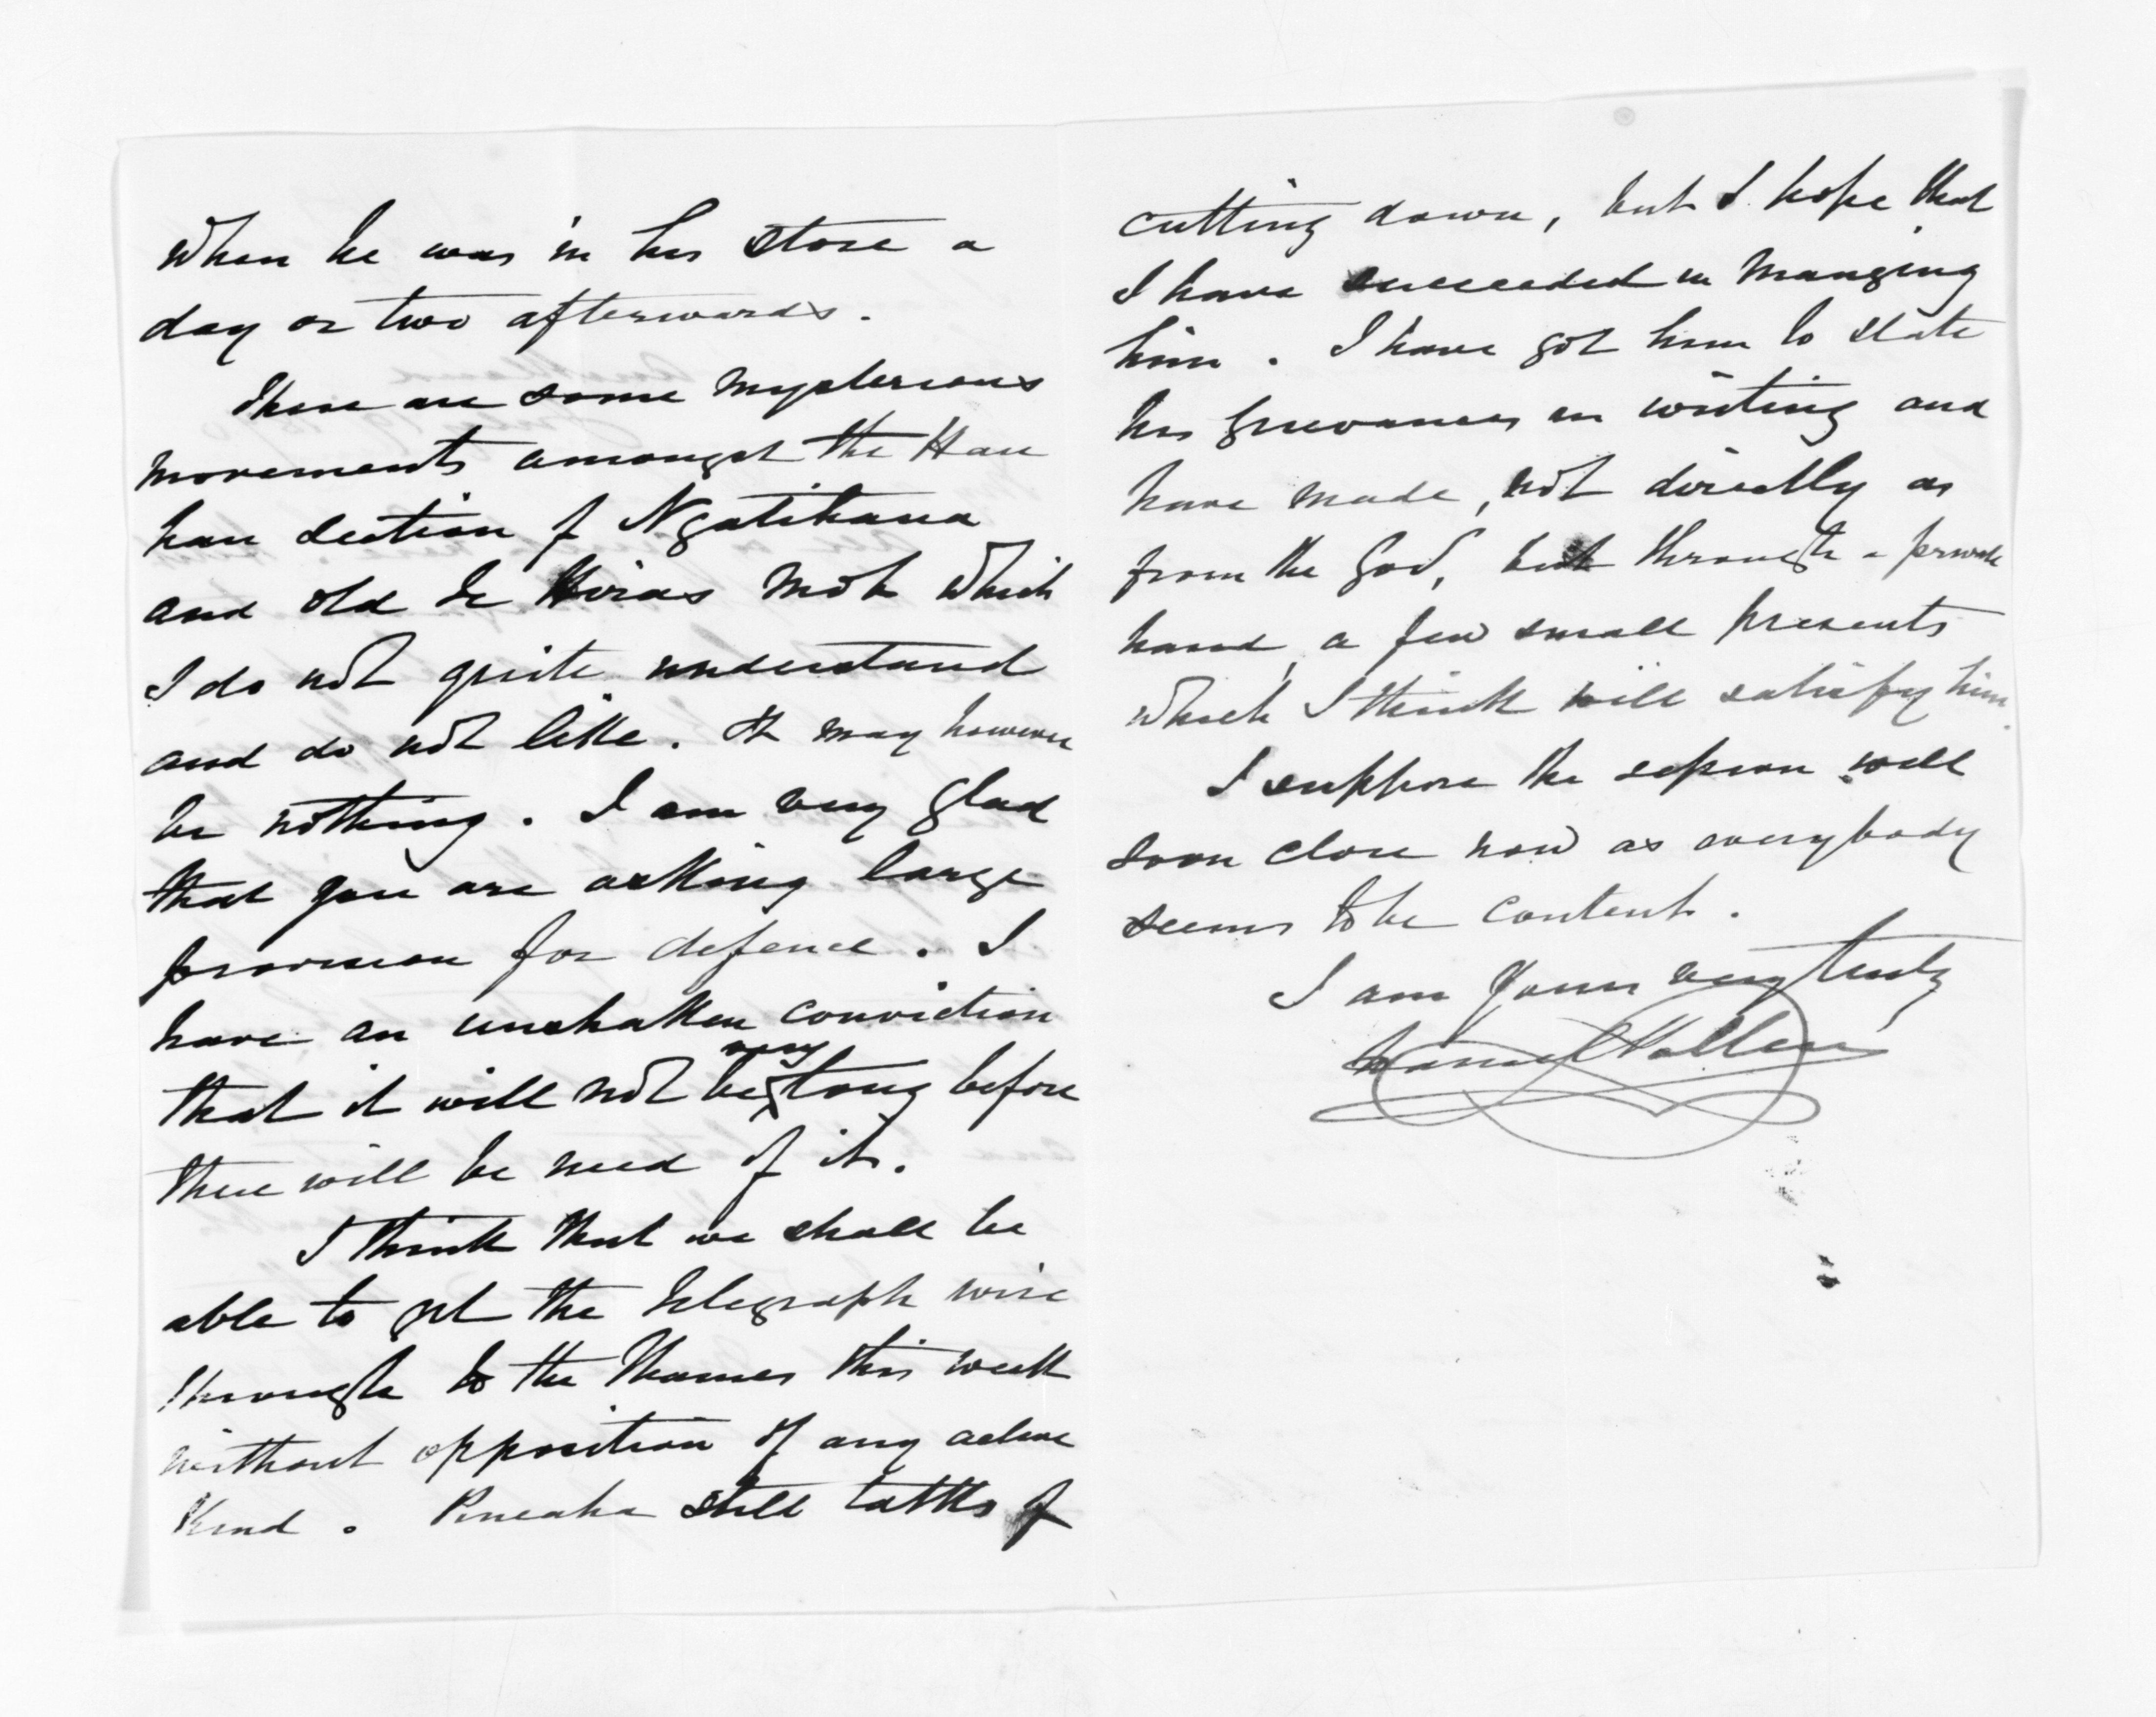 when he was in his store a
day or two afterwards.
There are some mysterious
movements amongst the Hau
hau section of Ngatihaua
and old Te Hiras mob which
I do not quite understand
and do not like. It may however
be nothing. I am very glad
that you are asking large
provision for defence. I
have an unshaken conviction
that it will not be very long before
there will be need of it.
I think that we shall be
able to get the telegraph wire
through to the Thames this week
without opposition of any active
kind. still talks of
cutting down, but I hope that
I have succeeded in manging
him. I have got him to state
his grievances in writing and
have made, not directly as
from the Govt, but through a private
hand, a few small presents
which I think will satisfy him.
I suppose the session will
soon close now as everybody
seems to be content.
I am Yours very truly
Daniel Pollen